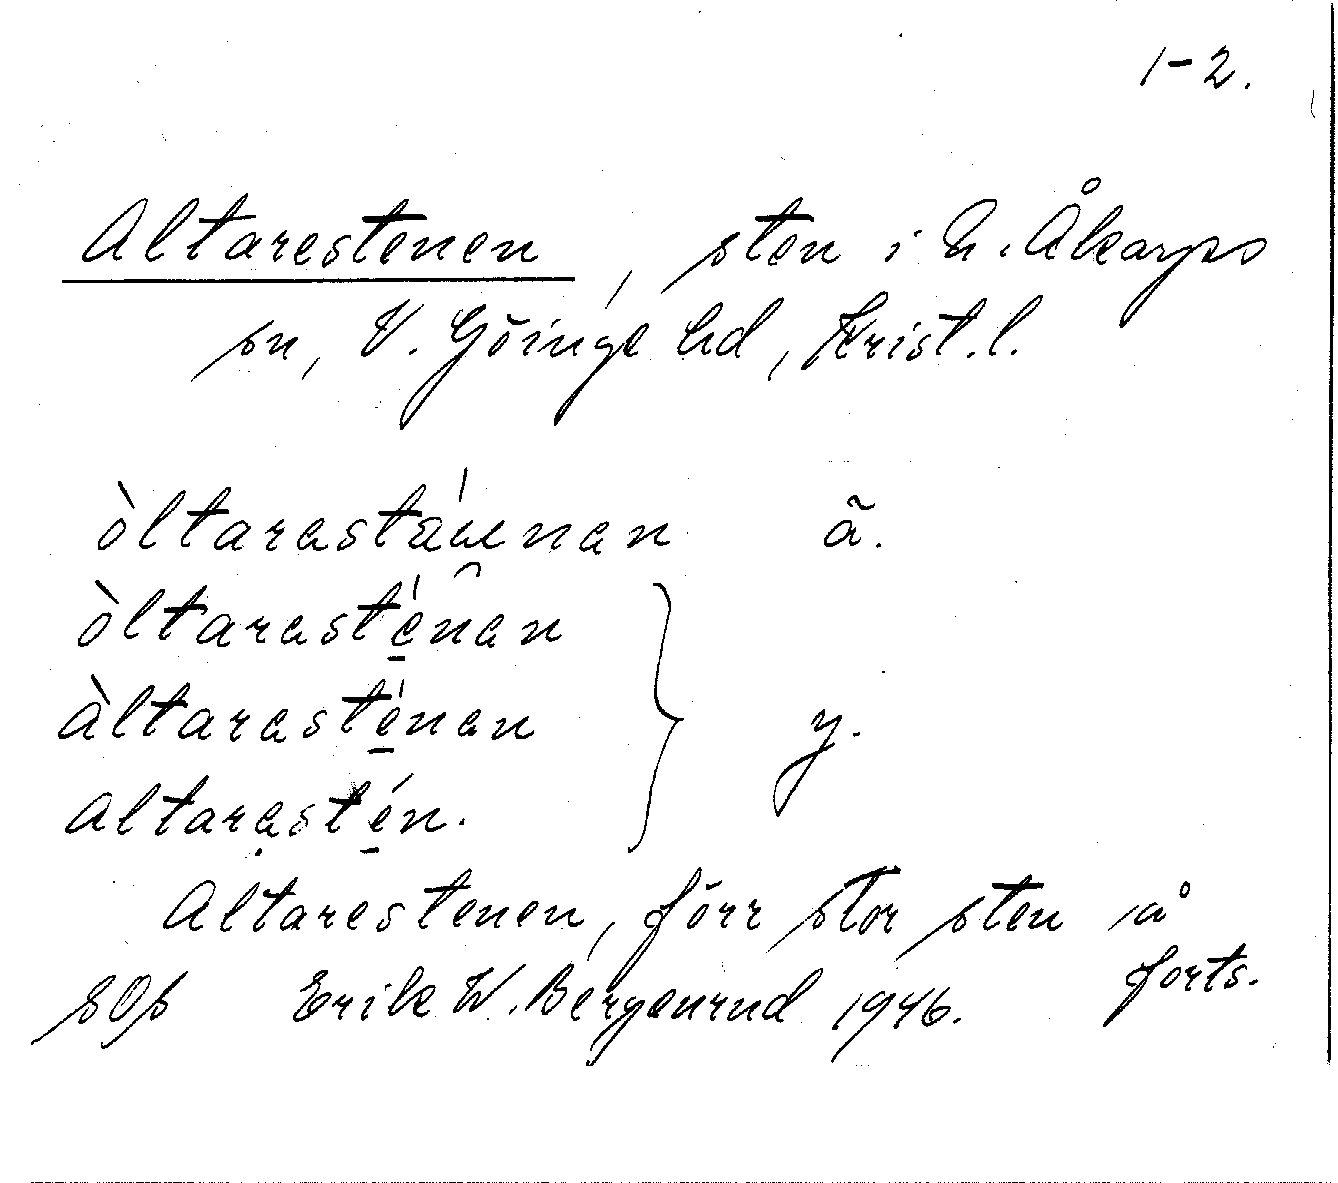 1-2.
Altarestenen, sten i N. Åkarps
sn, V. Göinge hd, Krist. l.
òltarastáunan ä.
òltarasténan
àltarasténan y.
altarastén.
Altarestenen, förr stor sten å
forts.
SOf Erik W. Bergenrud 1946.